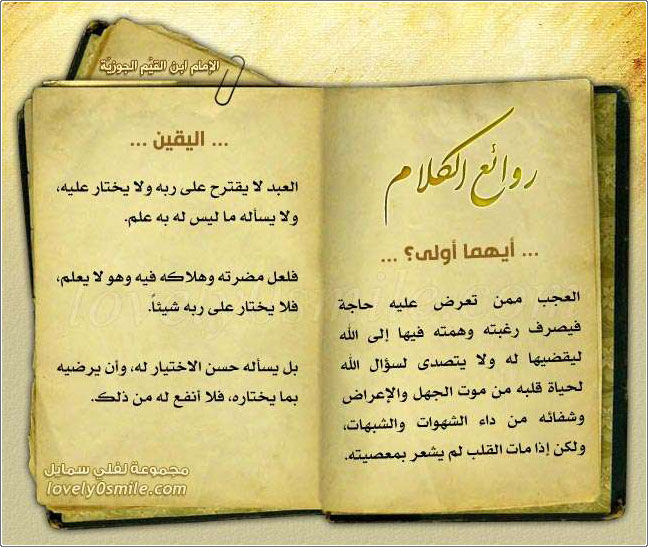 الإمام ابن القيّم الجوزيّة
روائع الكلام
... أيهما أولى؟ ...
العجب ممن تعرض عليه حاجة
فيصرف رغبته وهمته فيها إلى الله
ليقضيها له ولا يتصدى لسؤال الله
لحياة قلبه من موت الجهل والإعراض
وشفائه من داء الشهوات والشبهات،
ولكن إذا مات القلب لم يشعر بمعصيته.
... اليقين ...
العبد لا يقترح على ربه ولا يختار عليه،
ولا يسأله ما ليس له به علم.
فلعل مضرته وهلاكه فيه وهو لا يعلم،
فلا يختار على ربه شيئاً.
بل يسأله حسن الاختيار له، وأن يرضيه
بما يختاره، فلا أنفع له من ذلك.
مجموعة لفلي سمايل
lovely0smile.com
lovely0smile.com